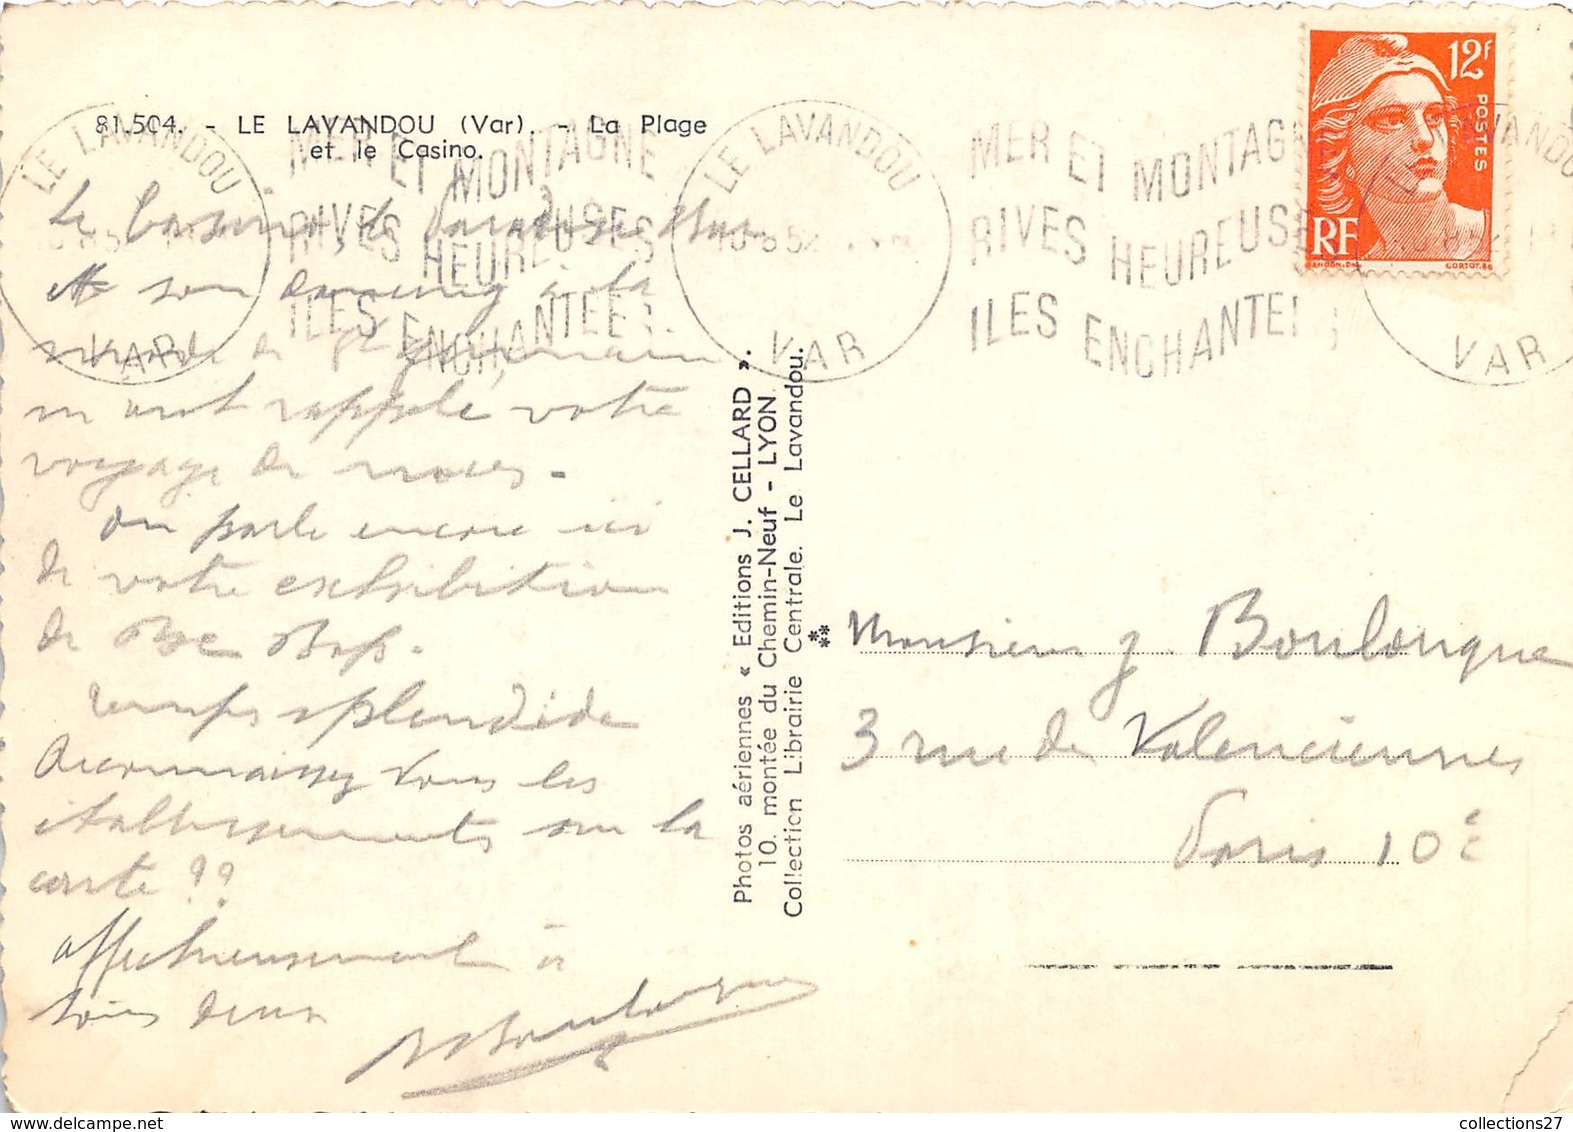 81.504. - LE LAVANDOU (Var). - La Plage
et le Casino.
LE LAVANDOU
VAR
MER ET MONTAGNE
RIVES HEUREUSES
ILES ENCHANTEES
LE LAVANDOU
VAR
MER ET MONTAGN
RIVES HEUREUSE
ILES ENCHANTEE
VANDOU
VAR
12F
POSTES
RF
GANDON.DEL
CORTOT.SC
Le Casino, le Paradise Bar
et son dancing à la
mode de
m'ont rappelé votre
voyage de noces.
On parle encore ici
de votre exhibition
de Be Bop.
Temps splendide
Reconnaissez vous les
établissements sur la
carte ??
affectueusement à
tous deux
Boulongne
Photos aériennes « Editions J. CELLARD ».
10. montée du Chemin-Neuf - LYON
Collection Librairie Centrale. Le Lavandou.
Monsieur J. Boulongne
3 rue de Valenciennes
Paris 10e
collections27